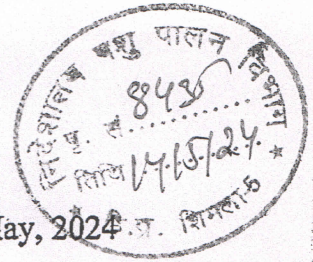 निदेशालय पशु पालन विभाग
पृ. सं.............
तिथि 17/5/24.
* हि.प्र. शिमला-5 *
May, 2024